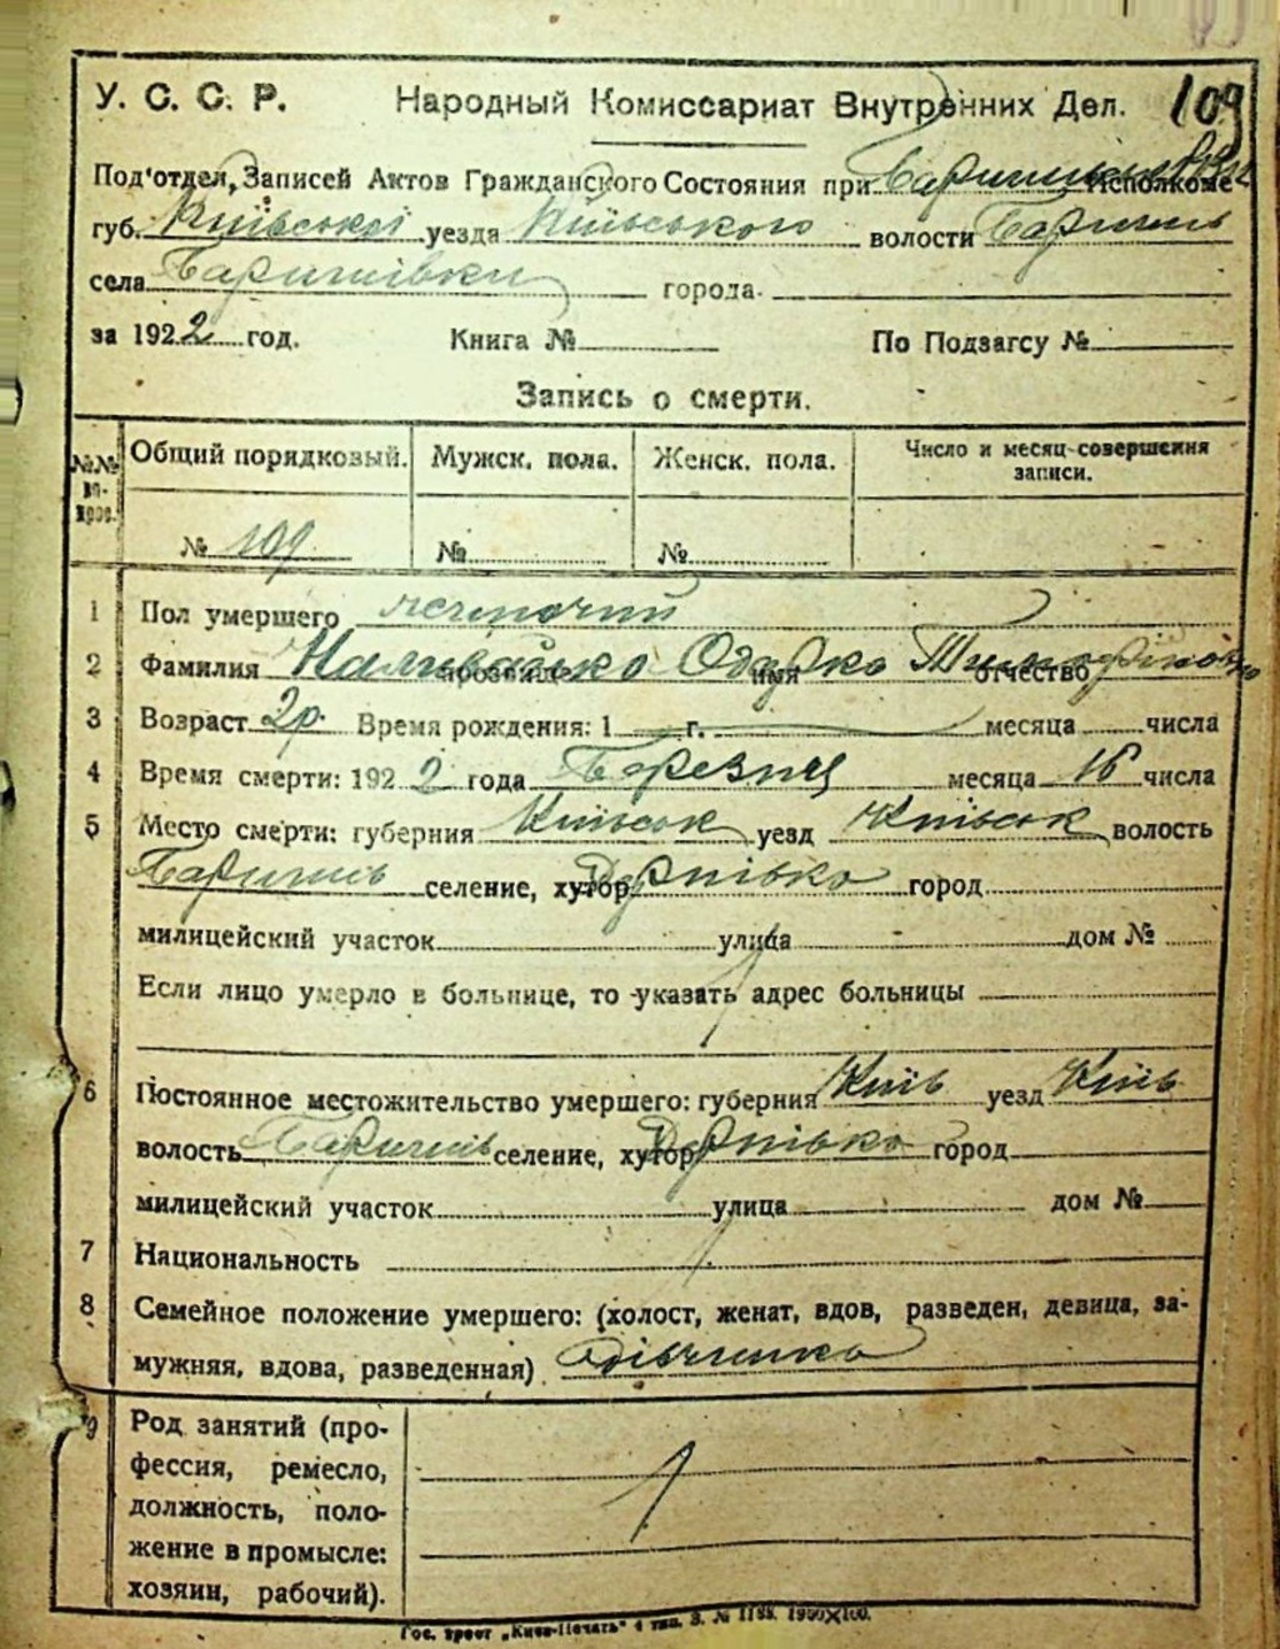 У. С. С. Р. Народный Комиссариат Внутренних Дел. 109
Под'отдел, Записей Актов Гражданского Состояния при Исполкоме
губ. Київської уезда Київського волости Баришів
села Баришівки города
за 1922 год. Книга № По Подзагсу №
Запись о смерти.
№№ во-прос. Общий порядковый. Мужск. пола. Женск. пола. Число и месяц совершения записи.
№ 109 № №
1 Пол умершего жіночий
2 Фамилия Наливайко прозвище имя отчество
3 Возраст 2р. Время рождения: 1 г. месяца числа
4 Время смерти: 1922 года Березня месяца 16 числа
5 Место смерти: губерния Київськ уезд Київськ волость
Баришів селение, хутор город
милицейский участок улица дом №
Если лицо умерло в больнице, то указать адрес больницы
6 Постоянное местожительство умершего: губерния Київ уезд Київ
волость Баришів селение, хутор город
милицейский участок улица дом №
7 Национальность
8 Семейное положение умершего: (холост, женат, вдов, разведен, девица, за-
мужняя, вдова, разведенная) дівчинка
9 Род занятий (про-
фессия, ремесло,
должность, поло-
жение в промысле:
хозяин, рабочий).
Гос. трест „Киев-Печать" 4 тип. З. № 1188.